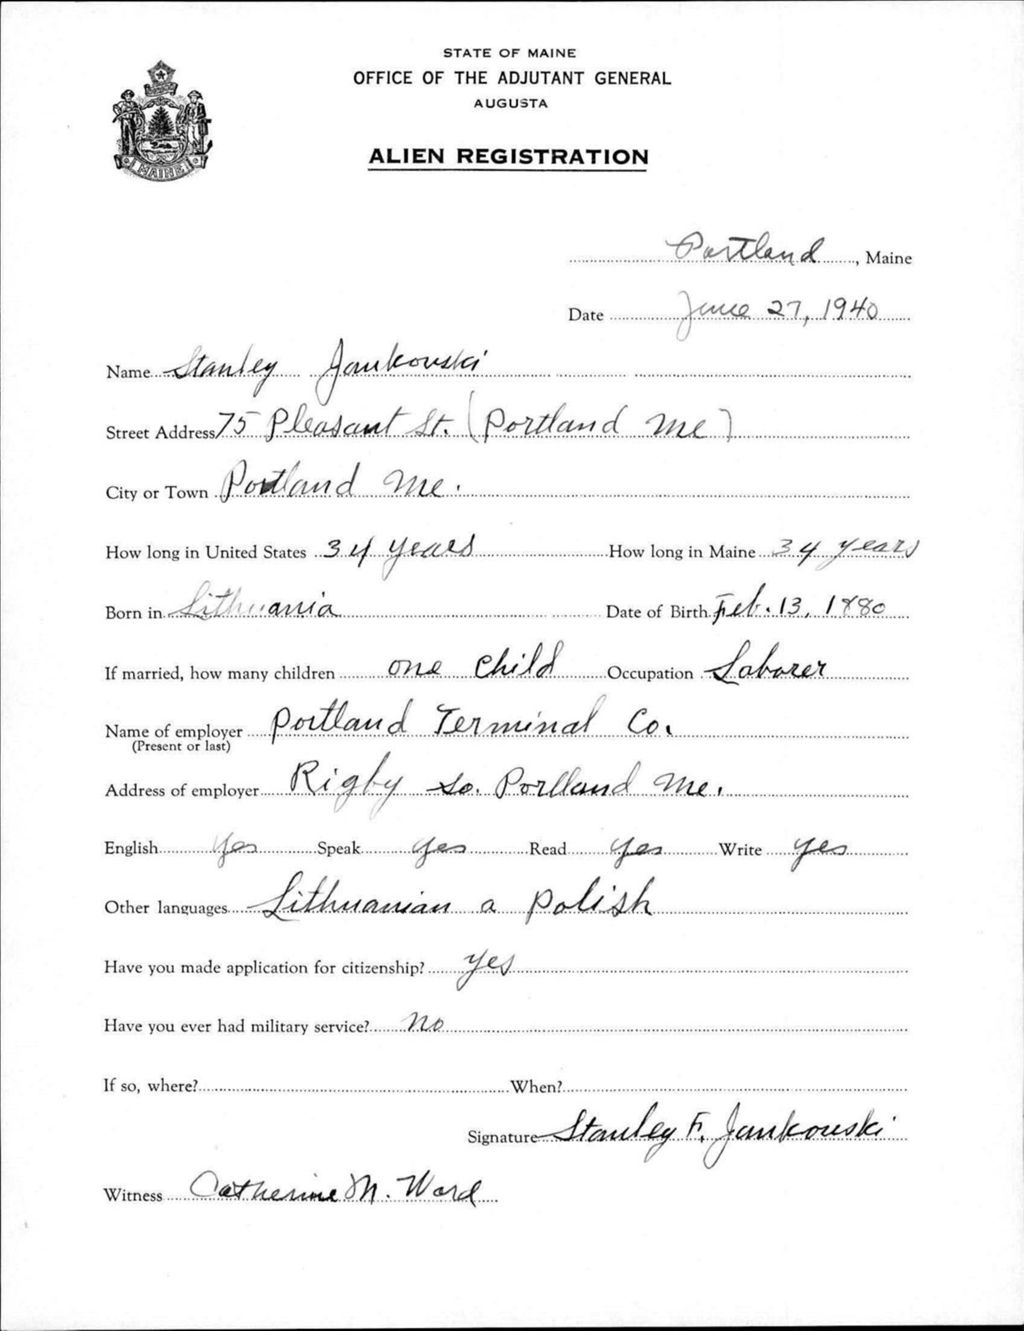 STATE OF MAINE
OFFICE OF THE ADJUTANT GENERAL
AUGUSTA
ALIEN REGISTRATION
MAINE
Portland, Maine
Date June 27, 1940
Name Stanley Jankowski
Street Address 75 Pleasant St. (Portland Me)
City or Town Portland Me.
How long in United States 34 years How long in Maine 34 years
Born in Lithuania Date of Birth Feb. 13, 1880
If married, how many children one child Occupation Laborer
Name of employer Portland Terminal Co.
(Present or last)
Address of employer Rigby So. Portland Me.
English Yes Speak yes Read yes Write yes
Other languages Lithuanian a Polish
Have you made application for citizenship? Yes
Have you ever had military service? No
If so, where? When?
Signature Stanley F. Jankowski
Witness Catherine M. Ward